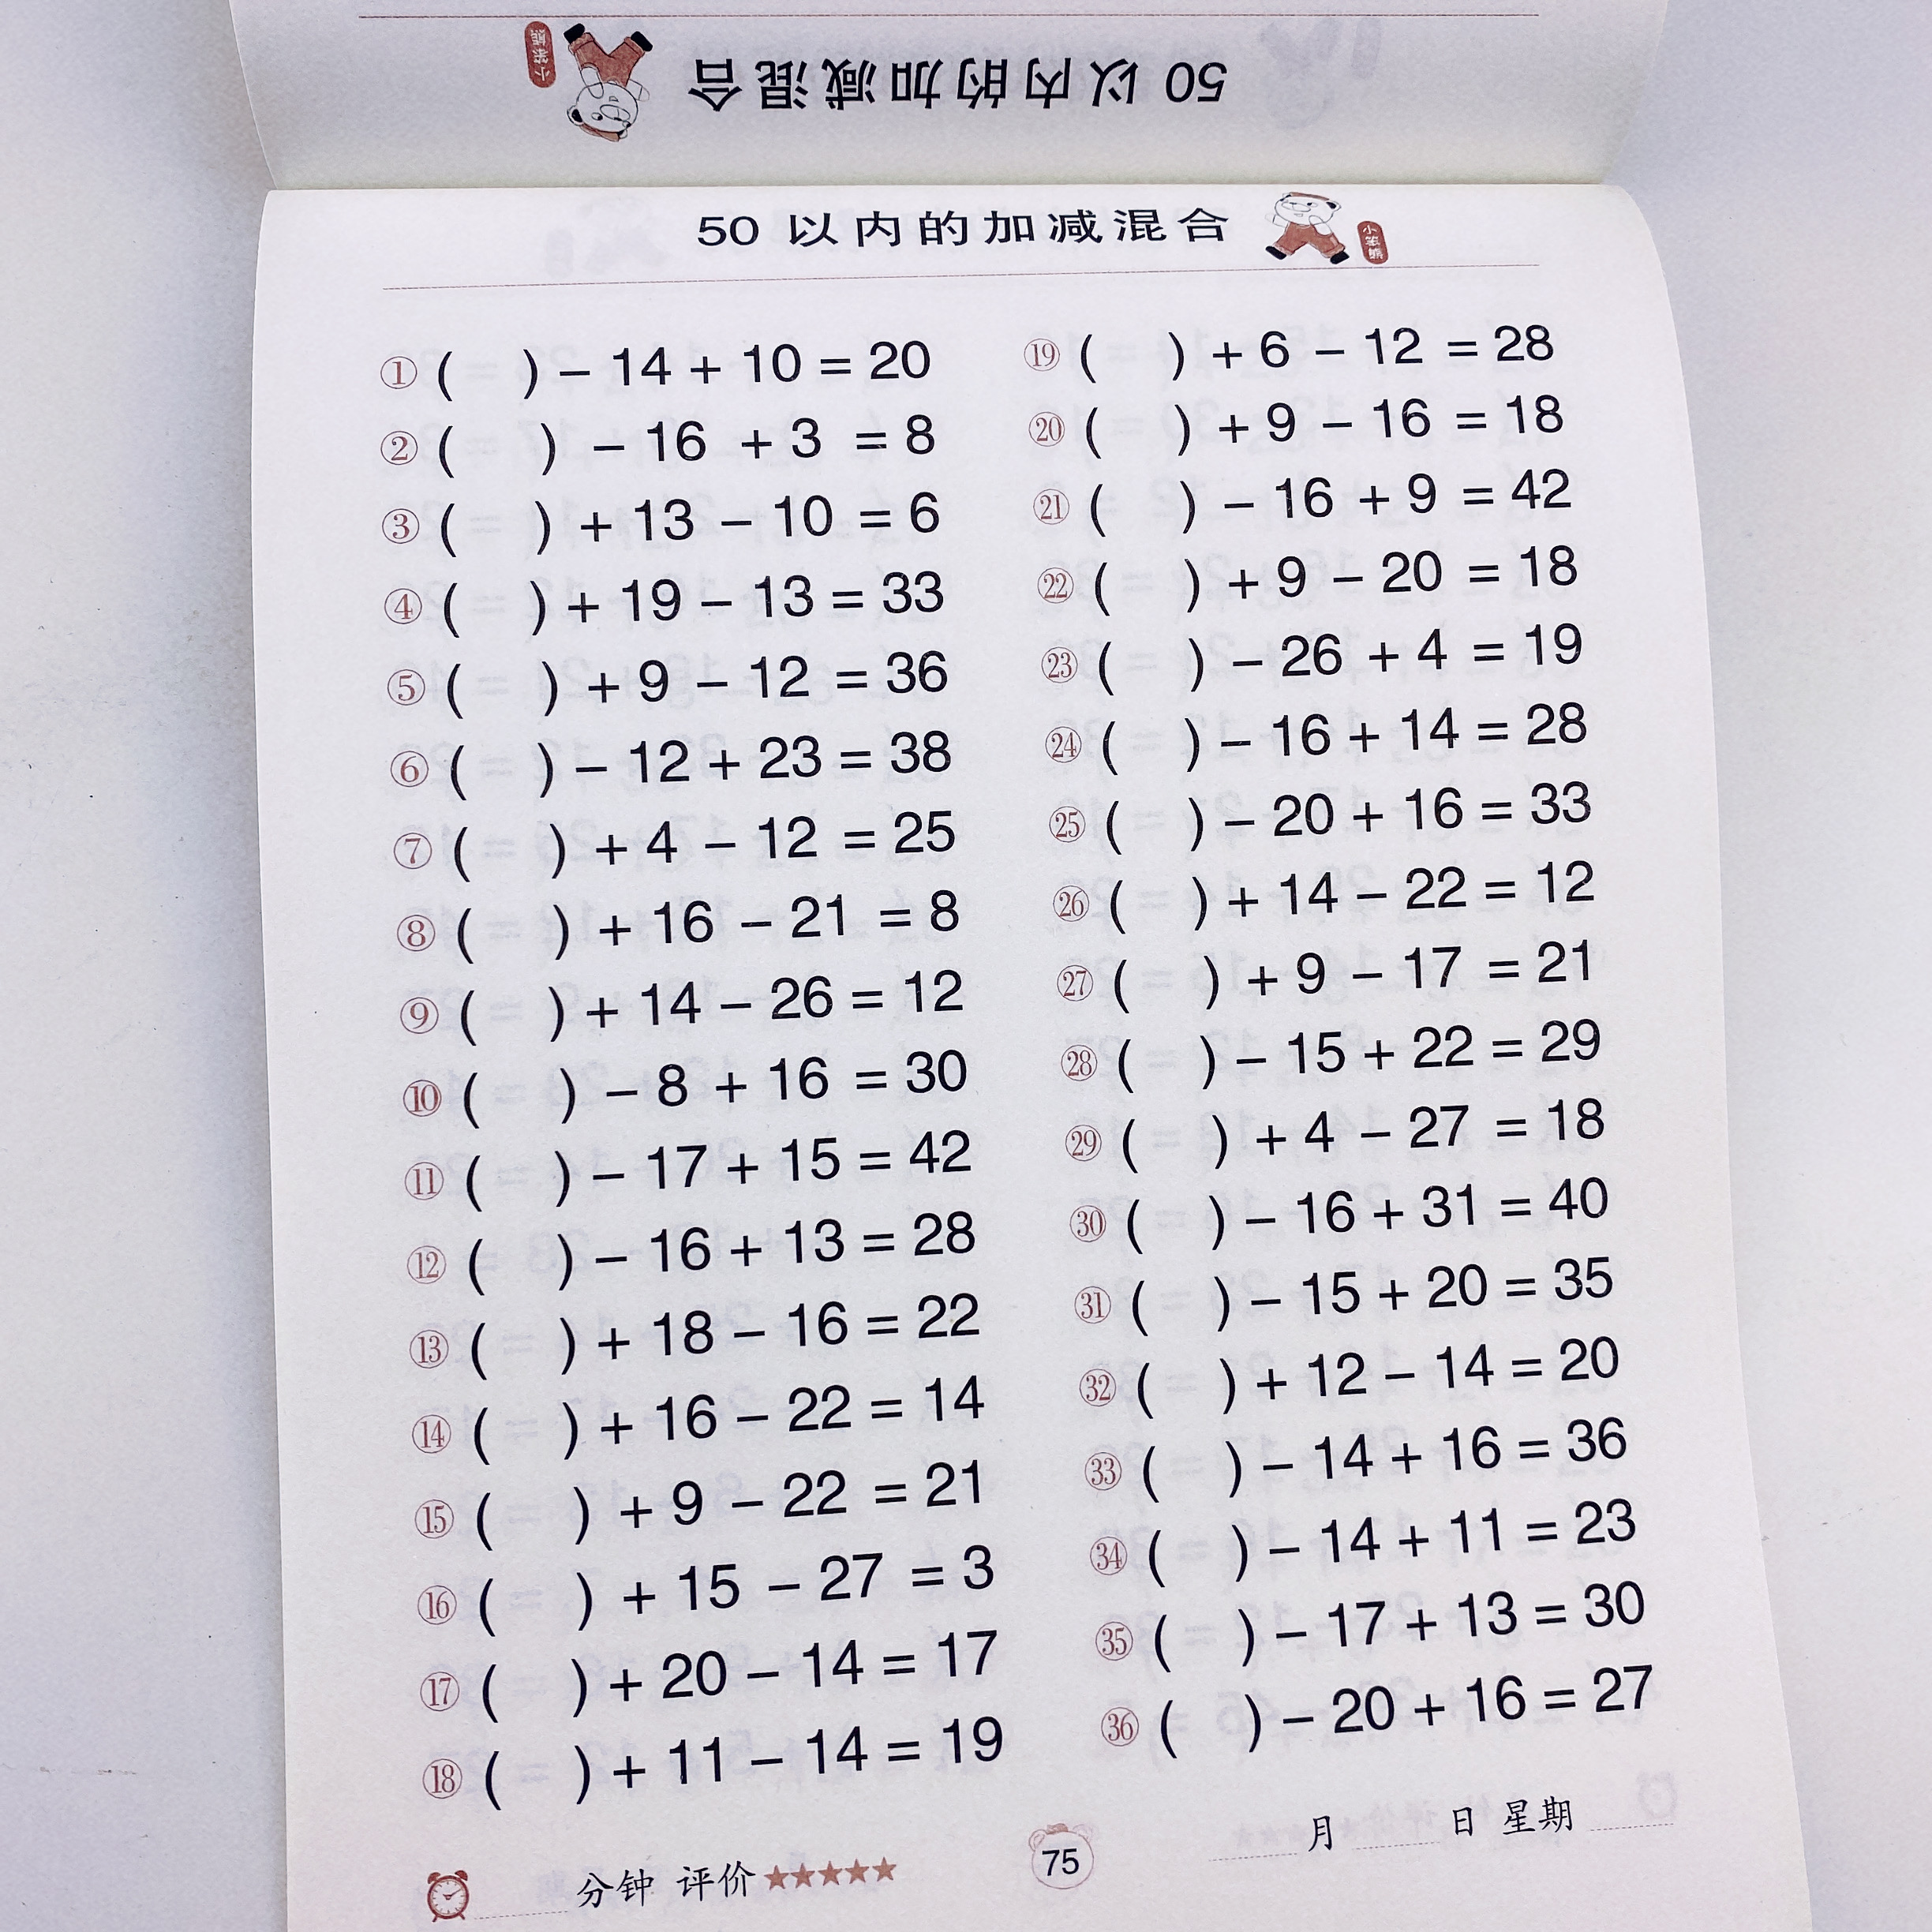 50 以内的加减混合
小笨熊
50 以内的加减混合
小笨熊
① ( ) − 14 + 10 = 20
② ( ) − 16 + 3 = 8
③ ( ) + 13 − 10 = 6
④ ( ) + 19 − 13 = 33
⑤ ( ) + 9 − 12 = 36
⑥ ( ) − 12 + 23 = 38
⑦ ( ) + 4 − 12 = 25
⑧ ( ) + 16 − 21 = 8
⑨ ( ) + 14 − 26 = 12
⑩ ( ) − 8 + 16 = 30
⑪ ( ) − 17 + 15 = 42
⑫ ( ) − 16 + 13 = 28
⑬ ( ) + 18 − 16 = 22
⑭ ( ) + 16 − 22 = 14
⑮ ( ) + 9 − 22 = 21
⑯ ( ) + 15 − 27 = 3
⑰ ( ) + 20 − 14 = 17
⑱ ( ) + 11 − 14 = 19
⑲ ( ) + 6 − 12 = 28
⑳ ( ) + 9 − 16 = 18
㉑ ( ) − 16 + 9 = 42
㉒ ( ) + 9 − 20 = 18
㉓ ( ) − 26 + 4 = 19
㉔ ( ) − 16 + 14 = 28
㉕ ( ) − 20 + 16 = 33
㉖ ( ) + 14 − 22 = 12
㉗ ( ) + 9 − 17 = 21
㉘ ( ) − 15 + 22 = 29
㉙ ( ) + 4 − 27 = 18
㉚ ( ) − 16 + 31 = 40
㉛ ( ) − 15 + 20 = 35
㉜ ( ) + 12 − 14 = 20
㉝ ( ) − 14 + 16 = 36
㉞ ( ) − 14 + 11 = 23
㉟ ( ) − 17 + 13 = 30
㊱ ( ) − 20 + 16 = 27
分钟 评价★★★★★
75
月 日 星期